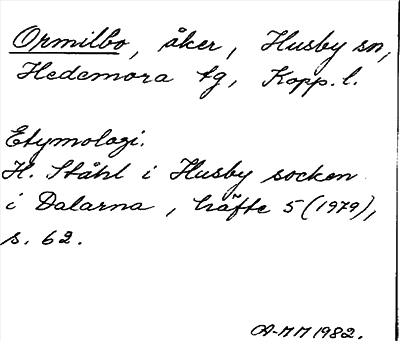 Ormilbo, åker, Husby sn,
Hedemora tg, Kopp. l.
Etymologi.
H. Ståhl i Husby socken
i Dalarna, häfte 5 (1979),
s. 62.
A-MM 1982.